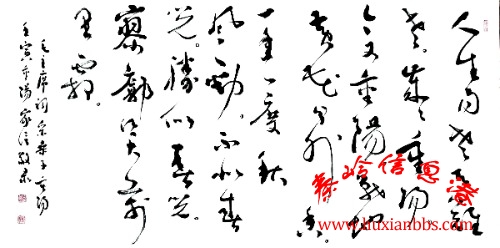 人生易老天难
老。岁岁重阳
今又重阳战地
黄花分外香
一年一度秋
风劲。不似春
光。胜似春光。
寥廓江天万
里霜。
毛主席词采桑子重阳
壬寅重阳家信敬录
信息
www.huxianbbs.com